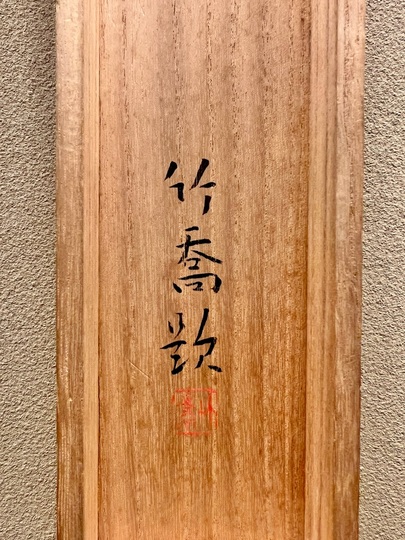 竹喬題